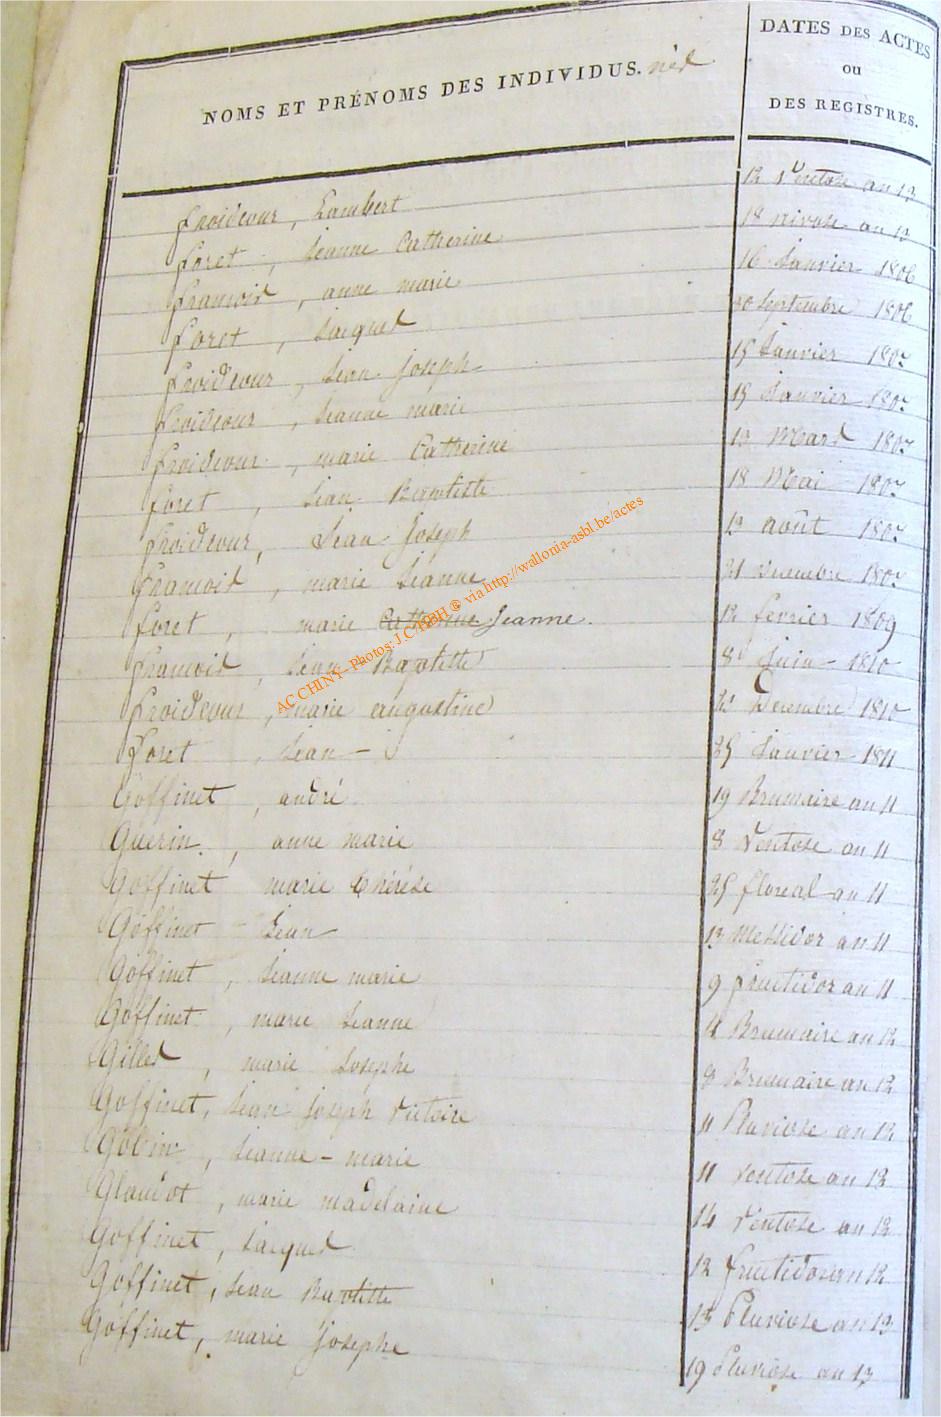 NOMS ET PRÉNOMS DES INDIVIDUS. nés
DATES DES ACTES
OU
DES REGISTRES.
froidcour, Lambert 12 Ventose an 13
foret, Jeanne Catherine 18 nivose an 13
françois, anne marie 16 Janvier 1806
foret, Jacques 30 septembre 1806
froidcour, Jean joseph 15 Janvier 1807
froidcour, Jeanne marie 15 Janvier 1807
froidcour, marie Catherine 13 Mars 1807
foret, Jean Baptiste 18 Mai 1807
froidcour, Jean Joseph 12 août 1807
françois, marie Jeanne 21 Decembre 1807
foret, marie Catherine Jeanne. 12 fevrier 1809
françois, Jean Baptiste 8 Juin 1810
froidcour, marie augustine Decembre 1810
foret, Jean - 25 Janvier 1811
Goffinet, andré 19 Brumaire an 11
Guerin, anne marie 8 Ventose an 11
Goffinet marie thérèse 25 floreal an 11
Goffinet - Jean 13 Messidor an 11
Goffinet, Jeanne marie 9 fructidor an 11
Goffinet, marie Jeanne Brumaire an 12
Gilles, marie Josephe 8 Brumaire an 12
Goffinet, Jean joseph Victoire 11 Pluviose an 12
Gobin, Jeanne - marie 11 ventose an 12
Glaudot, marie madelaine 14 Ventose an 12
Goffinet, Jacques 12 fructidor an 12
Goffinet, Jean Baptiste 13 Pluviose an 13
Goffinet, marie Josephe 19 Pluviose an 13
AC CHINY- Photos: J.C. HBH ® via http://wallonia-asbl.be/actes